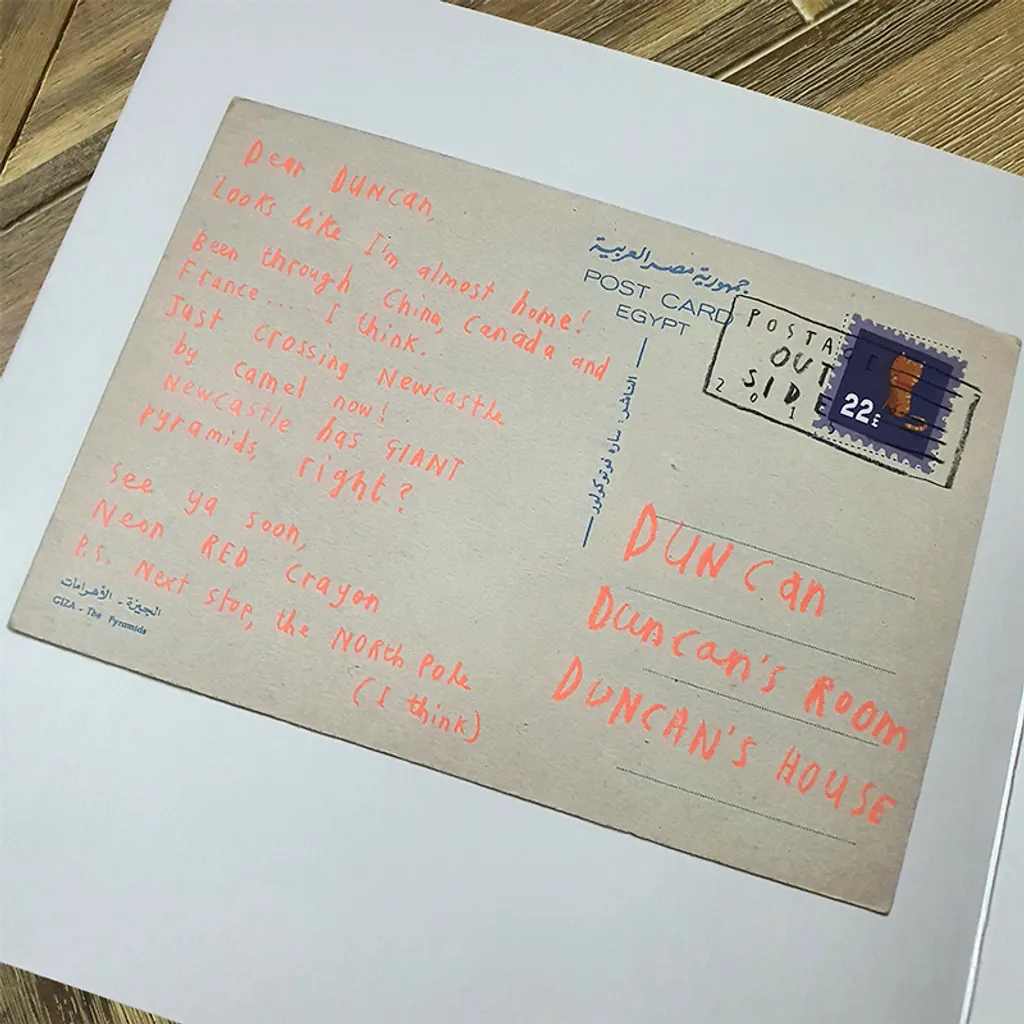 Dear DUNCan,
Looks like I'm almost home!
Been through China, Canada and
France.... I think.
Just crossing Newcastle
by camel now!
Newcastle has GIANT
pyramids, right?
See ya soon,
Neon RED Crayon
P.S. Next stop, the NORth Pole
(I think)
الجيزة - الأهرامات
GIZA - The Pyramids
جمهورية مصر العربية
POST CARD
EGYPT
الناشر: ساره فوتوكولور
POSTAGE
OUT
SIDE
22¢
DUNCan
Duncan's ROOM
DUNCAN'S HOUSE